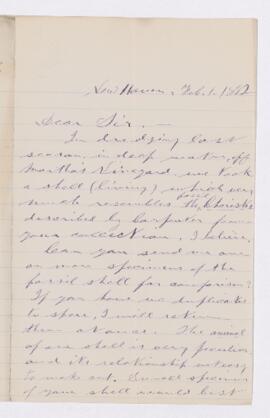 New Haven, Feb. 1. 1882
Dear Sir, —
In dredging last
season, in deep water, off
Martha's Vineyard we took
a shell (living) which very
much resembles the fossil
described by Carpenter from
your collection, I believe.
Can you send me one
or more specimens of the
fossil shell for comparison?
If you have no duplicates
to spare, I will return
them at once. The animal
of our shell is very peculiar
and its relationship not easy
to make out. Small specimens
of your shell would best